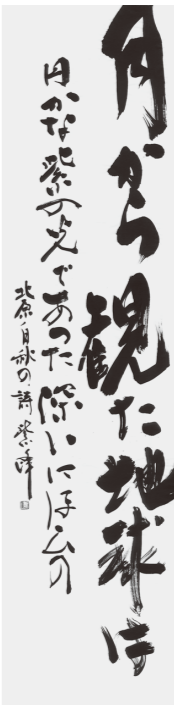 月から観た地球は
円かな紫の光であった深いにほひの
北原白秋の詩